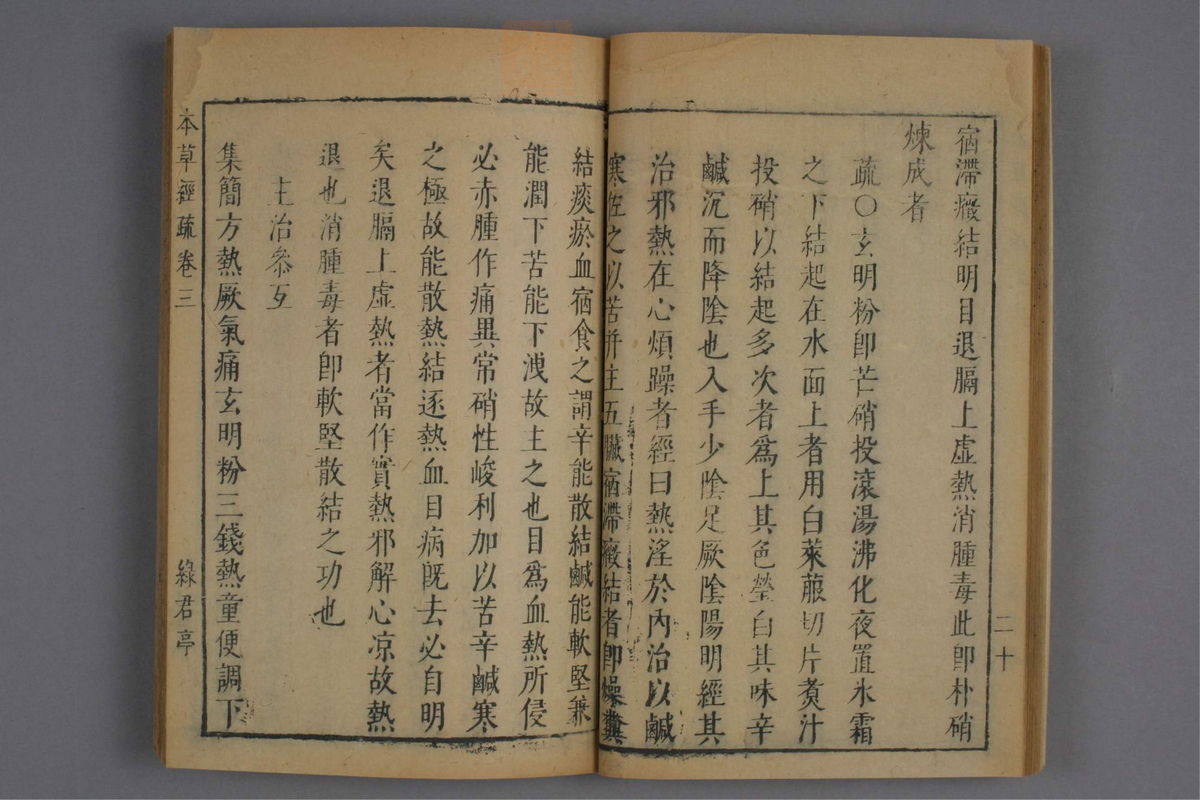 宿滯癥結明目退膈上虛熱消腫毒此卽朴硝
煉成者
疏〇玄明粉卽芒硝投滾湯沸化夜置氷霜
之下結起在水面上者用白萊菔切片煑汁
投硝以結起多次者爲上其色瑩白其味辛
鹹沉而降陰也入手少陰足厥陰陽明經其
治邪熱在心煩躁者經曰熱淫於內治以鹹
寒佐之以苦并主五臟宿滯癥結者卽燥糞
二十
結痰瘀血宿食之謂辛能散結鹹能軟堅兼
能潤下苦能下洩故主之也目爲血熱所侵
必赤腫作痛異常硝性峻利加以苦辛鹹寒
之極故能散熱結逐熱血目病旣去必自明
矣退膈上虛熱者當作實熱邪解心凉故熱
退也消腫毒者卽軟堅散結之功也
主治參互
集簡方熱厥氣痛玄明粉三錢熱童便調下
本草經疏卷三
綠君亭